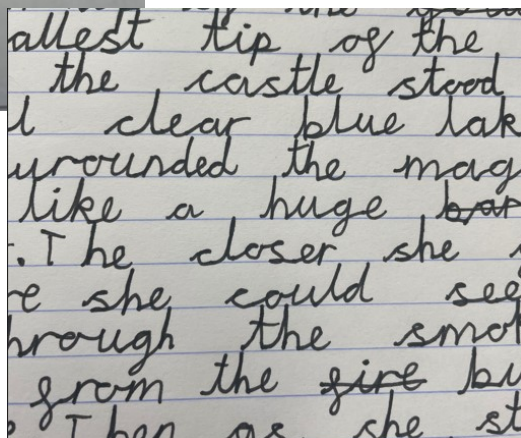 allest tip of the
the castle stood
l clear blue lak
urounded the mag
like a huge bar
. The closer she
e she could see
hrough the smo
from the fire bu
Then as she st